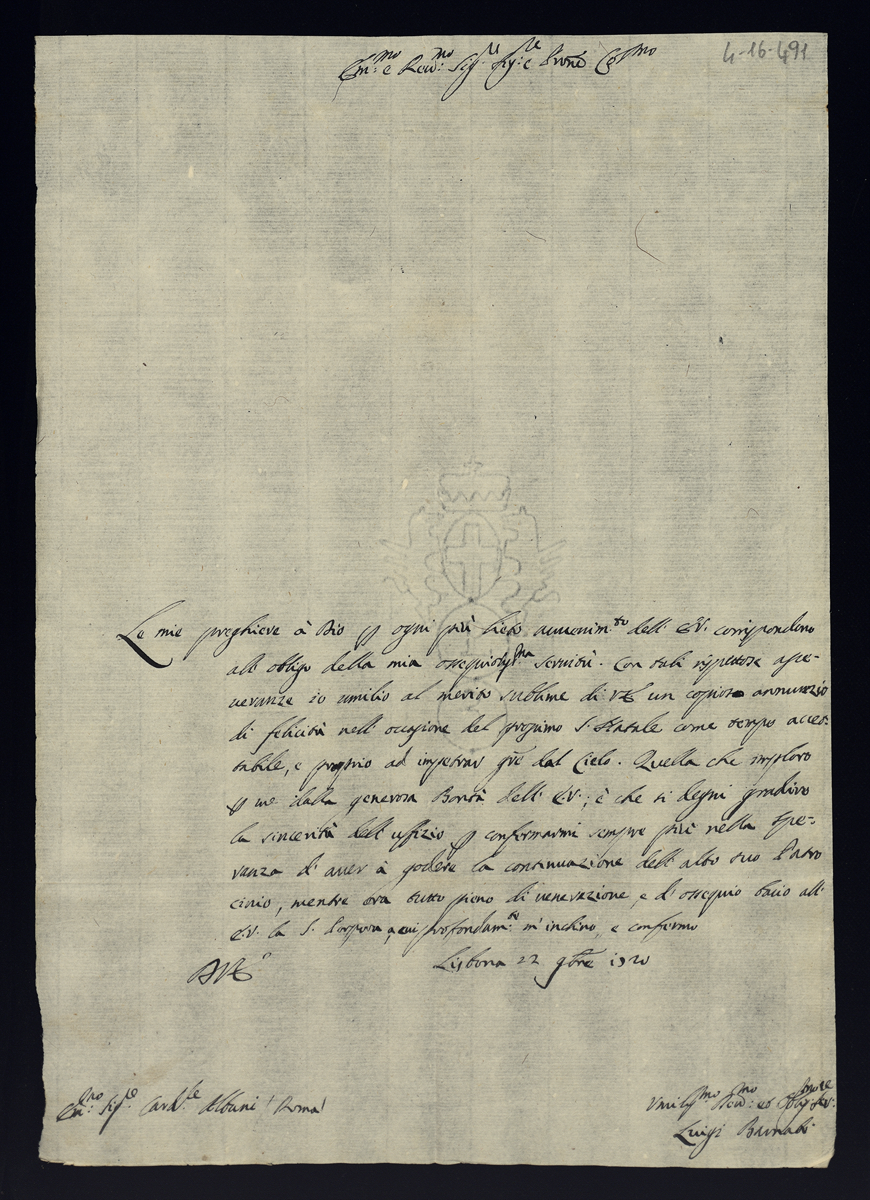 4-16-491
Em:mo e Rev:mo Sig:re Sig:re e Pròne Col:mo
Le mie preghiere à Dio p ogni più lieto avvenim:to dell' E.V. corrispondono
all' obligo della mia ossequiosiss:ma servitù. Con tali rispettose aspe-
veranze io umilio al merito sublime di V.E. un copioso annunzio
di felicità nell' occasione del prossimo S. Natale come tempo accet-
tabile, e proprio ad impetrar gr̃e dal Cielo. Quella che imploro
p me dalla generosa Bontà dell' E.V., è che si degni gradire
la sincerità dell' uffizio p confermarmi sempre più nella spe-
ranza d' aver à godere la continuazione dell' alto suo Patro
cinio, mentre ora tutto pieno di venerazione, e d' ossequio bacio all'
E.V. la S. Porpora, a cui profondam:te m' inchino, e confermo
Lisbona 22 9bre 1720
D V E
Em:mo Sig:re Card:le Albani / Roma /
Umiliss:mo Dev:mo ed Oblig:mo Ser:re
Luigi Barnabi